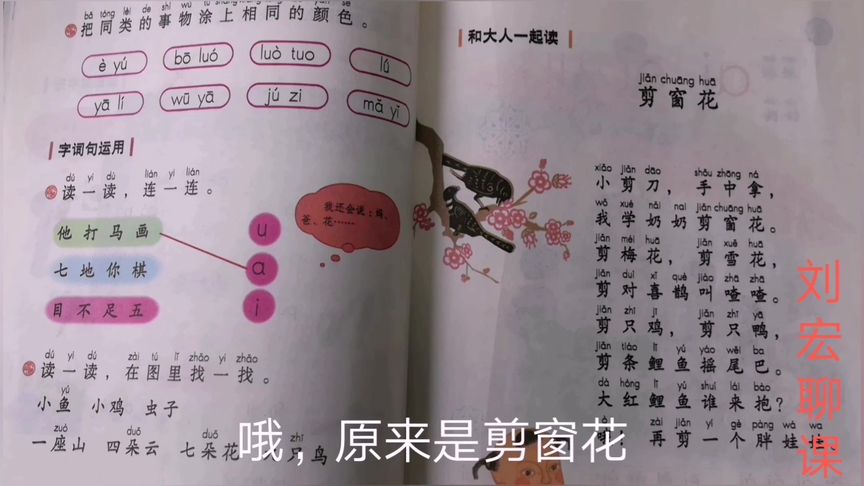 bǎ tóng lèi de shì wù tú shàng xiāng tóng de yán sè
把同类的事物涂上相同的颜色。
è yú bō luó luò tuo lú
yā lí wū yā jú zi mǎ yǐ
字词句运用
dú yi dú lián yi lián
读一读，连一连。
我还会说：妈、
爸、花……
他打马画 u
七地你棋 a
目不足五 i
dú yi dú zài tú lǐ zhǎo yi zhǎo
读一读，在图里找一找。
yú
小鱼 小鸡 虫子
zuò duǒ duǒ zhī
一座山 四朵云 七朵花 只鸟
和大人一起读
jiǎn chuāng huā
剪窗花
xiǎo jiǎn dāo shǒu zhōng ná
小剪刀，手中拿，
wǒ xué nǎi nai jiǎn chuāng huā
我学奶奶剪窗花。
jiǎn méi huā jiǎn xuě huā
剪梅花，剪雪花，
jiǎn duì xǐ què jiào zhā zhā
剪对喜鹊叫喳喳。
jiǎn zhī jī jiǎn zhī yā
剪只鸡，剪只鸭，
jiǎn tiáo lǐ yú yáo wěi ba
剪条鲤鱼摇尾巴。
dà hóng lǐ yú shuí lái bào
大红鲤鱼谁来抱？
zài jiǎn yí gè pàng wá wa
再剪一个胖娃
哦，原来是剪窗花
刘宏聊课